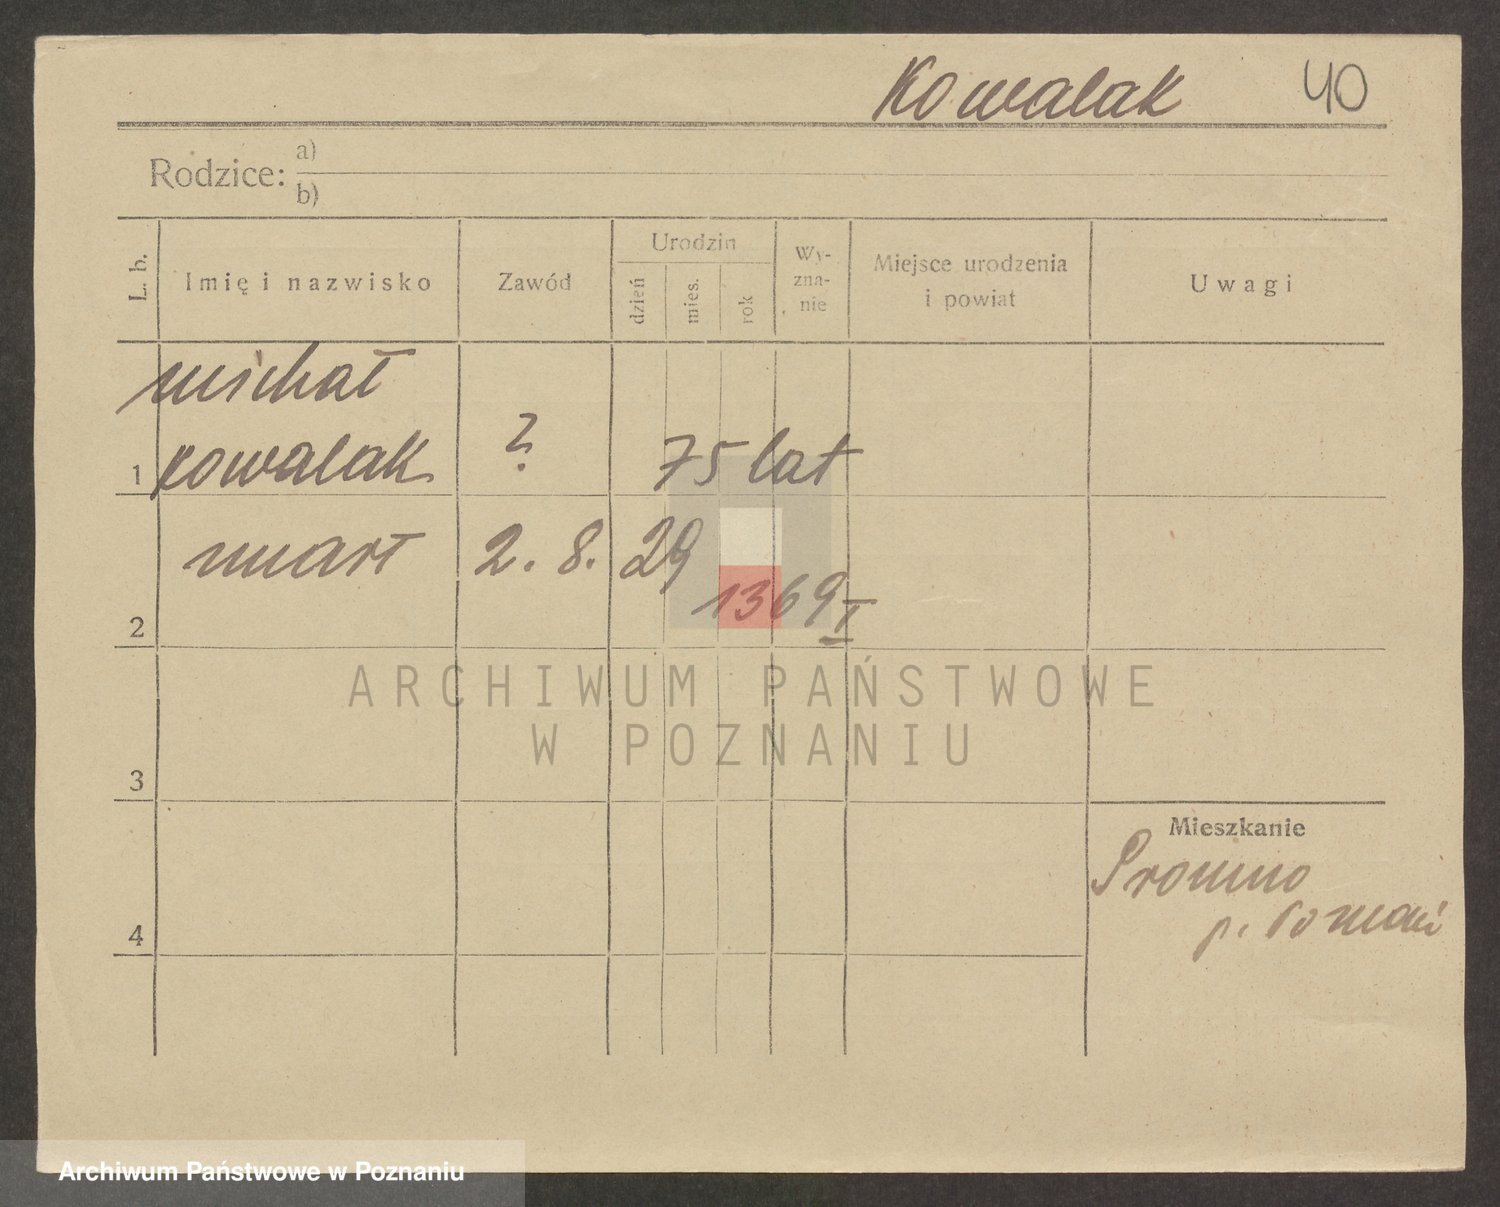 Kowalak 40
Rodzice: a)
b)
L. b.
Imię i nazwisko
Zawód
Urodzin
dzień
mies.
rok
Wy-
zna-
nie
Miejsce urodzenia
i powiat
Uwagi
Michał
1 Kowalak ? 75 lat
zmarł 2. 8. 29
1369 I
2
3
4
Mieszkanie
Promno
p. Poznań
ARCHIWUM PAŃSTWOWE
W POZNANIU
Archiwum Państwowe w Poznaniu